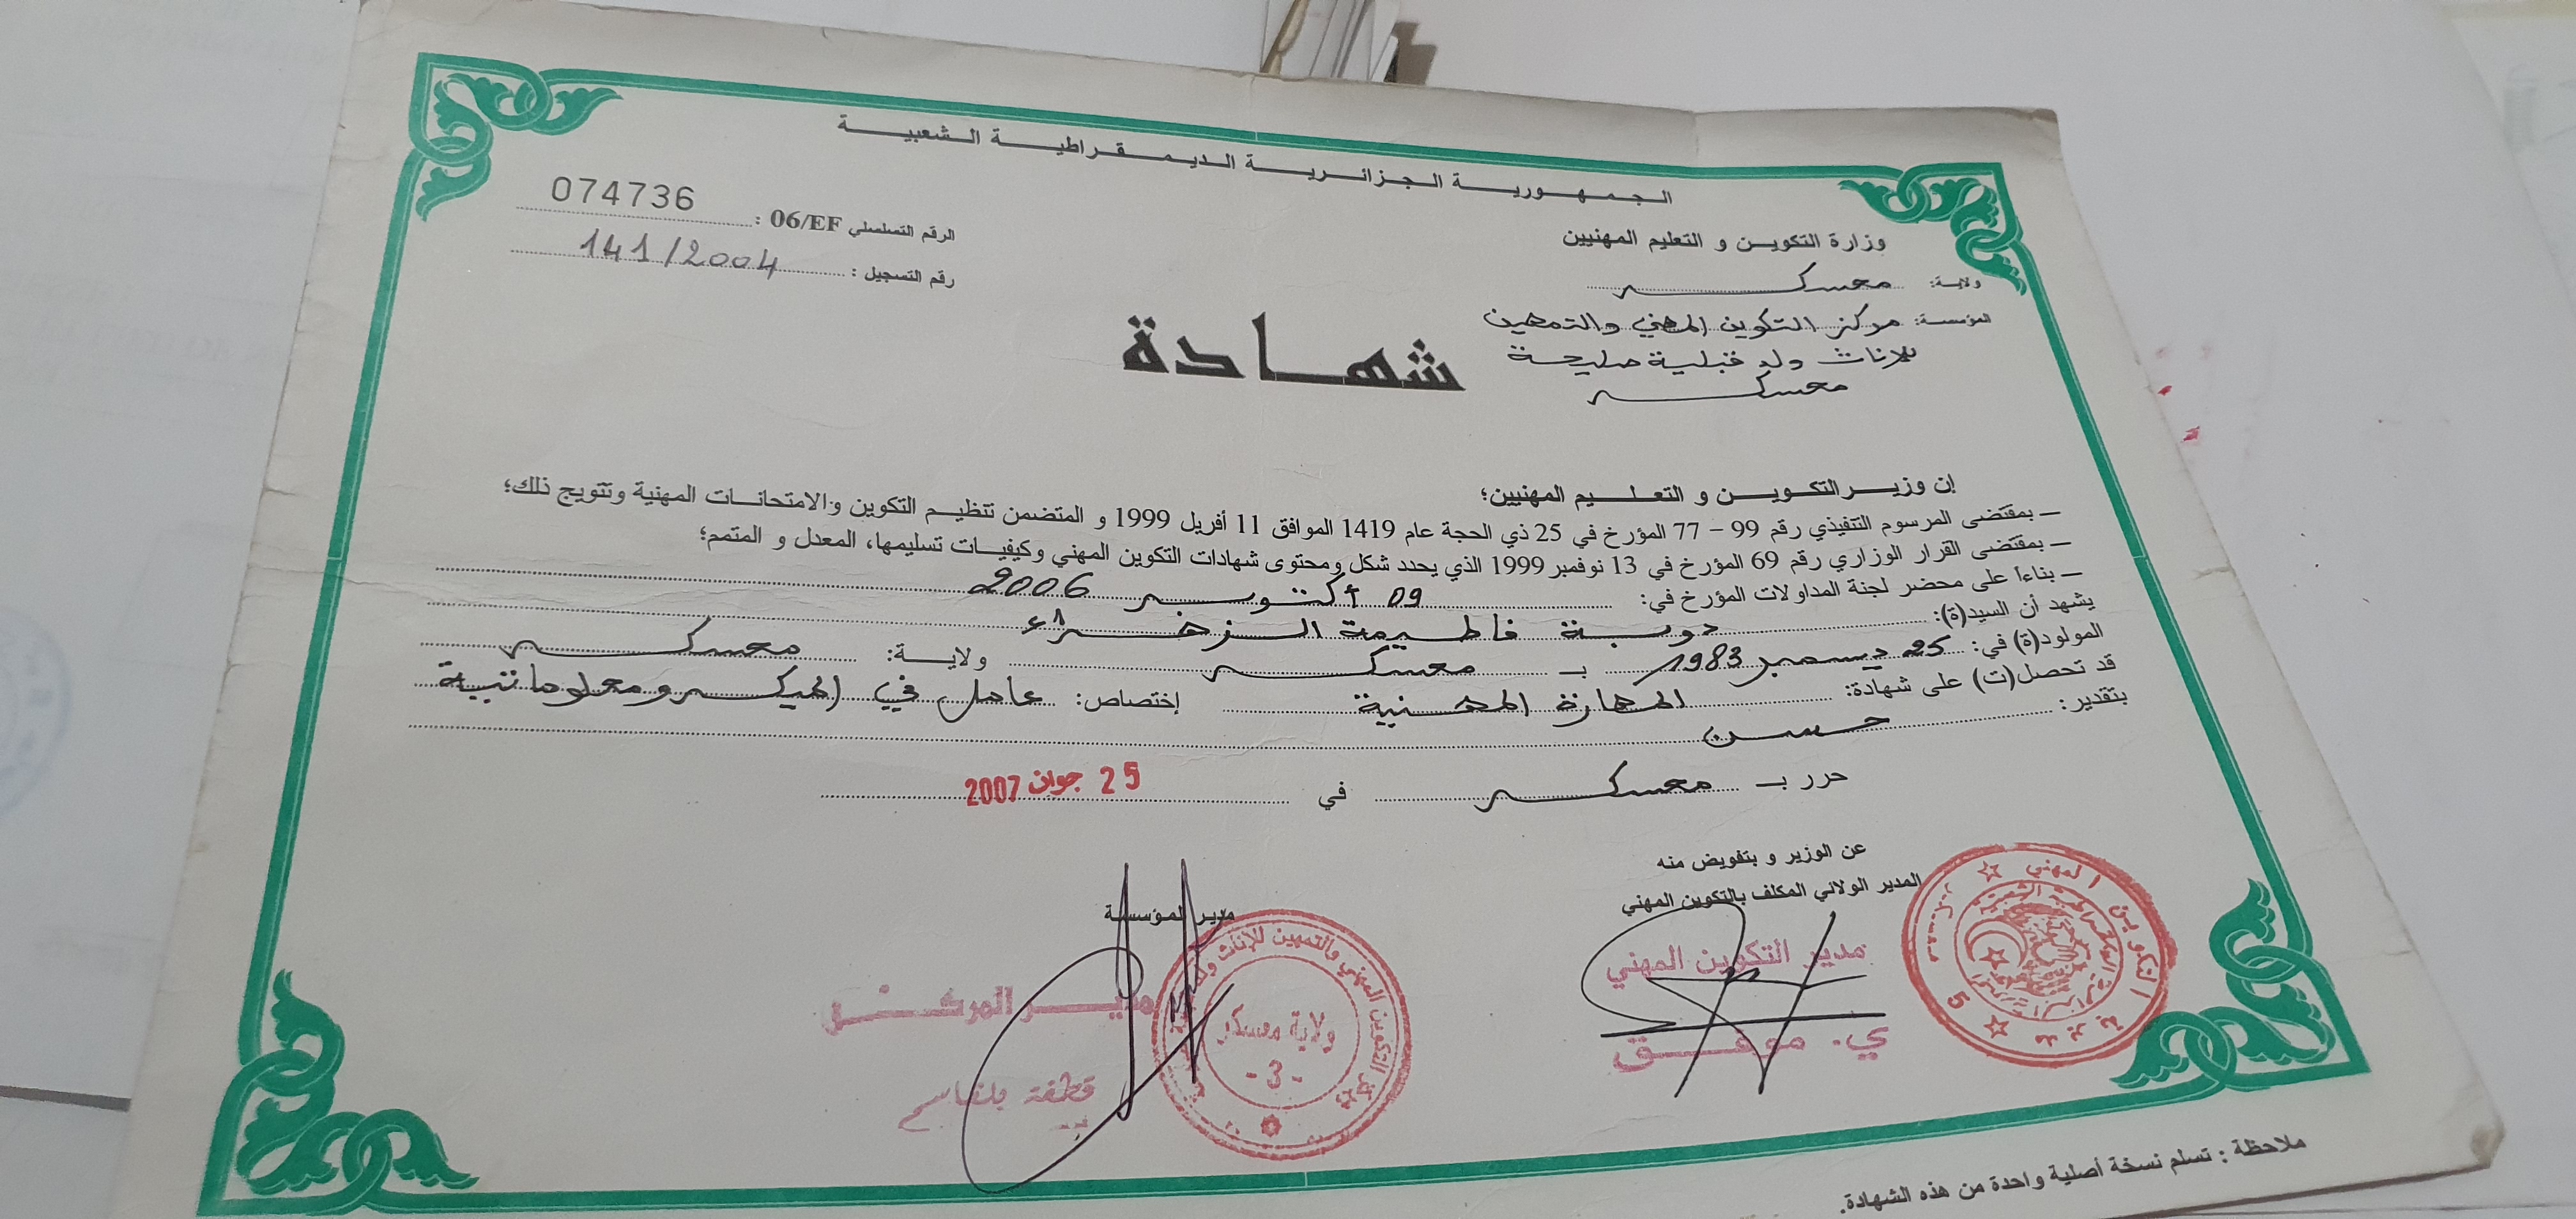 الجمهورية الجزائرية الديمقراطية الشعبية
وزارة التكوين و التعليم المهنيين
ولاية: معسكر
المؤسسة: مركز التكوين المهني والتمهين
للاناث ولد قبلية صليحة
معسكر
الرقم التسلسلي 06/EF : 074736
رقم التسجيل : 141/2004
شهادة
إن وزير التكوين و التعليم المهنيين؛
– بمقتضى المرسوم التنفيذي رقم 99 – 77 المؤرخ في 25 ذي الحجة عام 1419 الموافق 11 أفريل 1999 و المتضمن تنظيم التكوين والامتحانات المهنية وتتويج ذلك؛
– بمقتضى القرار الوزاري رقم 69 المؤرخ في 13 نوفمبر 1999 الذي يحدد شكل ومحتوى شهادات التكوين المهني وكيفيات تسليمها، المعدل و المتمم؛
– بناءا على محضر لجنة المداولات المؤرخ في: 09 أكتوبر 2006
يشهد أن السيد(ة): دوبة فاطيمة الزهراء
المولود(ة) في: 25 ديسمبر 1983 بـ معسكر ولاية: معسكر
قد تحصل(ت) على شهادة: المهارة المهنية إختصاص: عامل في الميكرومعلوماتية
بتقدير: حسن
حرر بـ معسكر في 25 جوان 2007
عن الوزير و بتفويض منه
المدير الولائي المكلف بالتكوين المهني
مدير التكوين المهني
ي. موفق
مدير المؤسسة
مدير المركز
بلقاسم
مركز التكوين المهني والتمهين للإناث
ولاية معسكر
- 3 -
مديرية التكوين المهني
معسكر
5
ملاحظة : تسلم نسخة أصلية واحدة من هذه الشهادة.